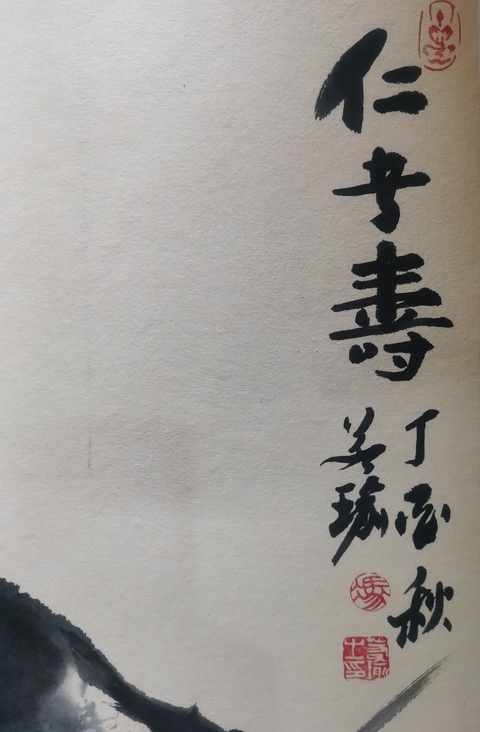 仁者壽
丁酉秋
瑜